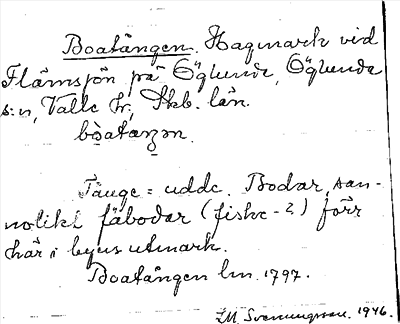 Boatången. Hagmark vid
Flämsjön på Öglunda, Öglunda
s:n, Valle hr, Skb. län.
bòataŋən.
Tånge = udde. Bodar, san-
nolikt fäbodar (fiske-?) förr
här i byns utmark.
Boatången lm. 1797.
I.M. Svenungsson. 1946.